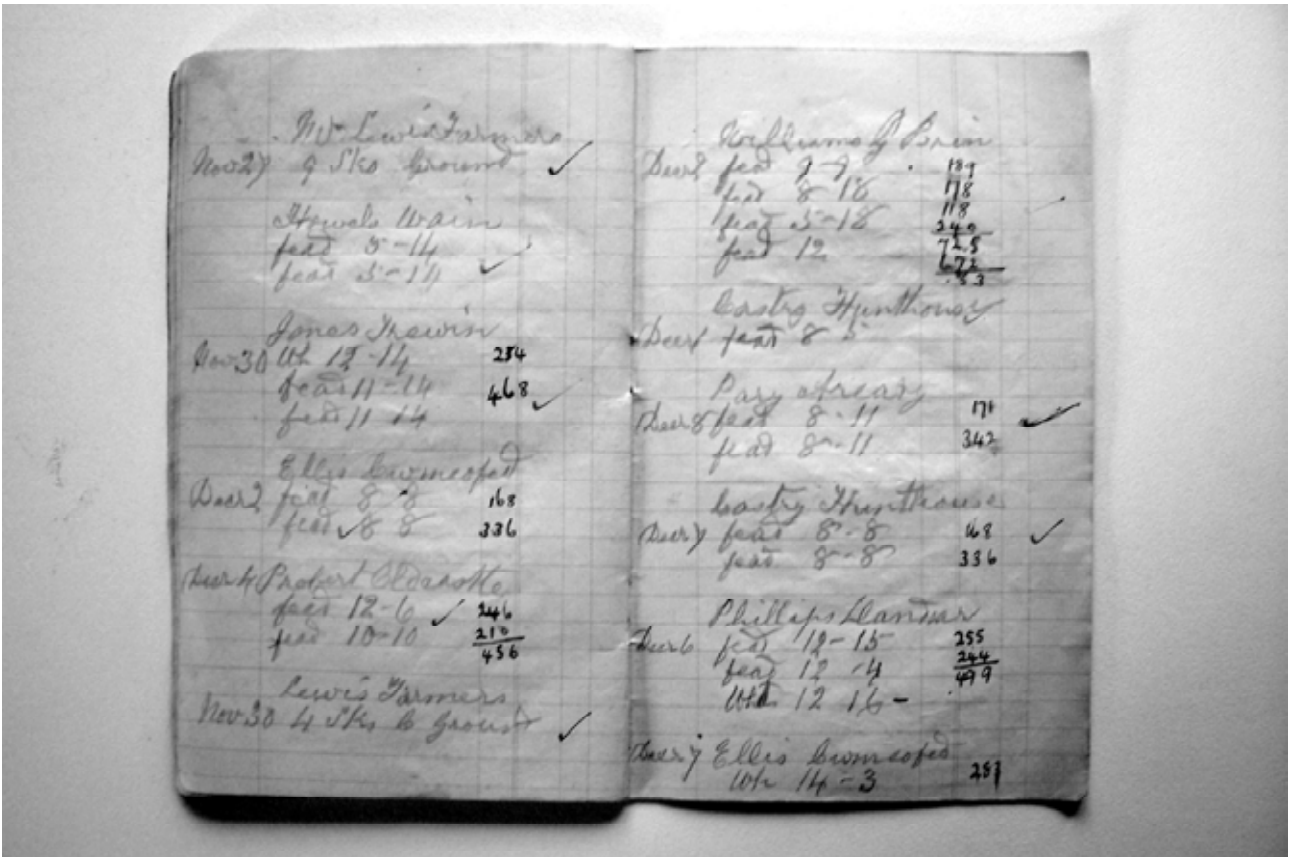 Mr Lewis Farmers
Nov 27 9 Sks Ground ✓
Howels Wain
fead 5-14
fead 5-14 ✓
Jones Trewin
Nov 30 Wh 12-14 254
fead 11-14 468 ✓
fead 11 14
Ellis Cwmcoped
Decr 2 fead 8-8 168
fead ✓ 8 8 336
Decr 4 Probert
fead 12-6 ✓ 246
fead 10-10 210
456
Lewis Farmers
Nov 30 4 Sks to Ground ✓
Williams Brin
Decr fead 9-9 189
fead 8-18 178
fead 5-18 118
fead 12 240
725
672
53
Hunthouse
Decr fead 8 5
Decr 8 fead 8-11 171 ✓
fead 8-11 342
Hunthouse
Decr 7 fead 8-8 168 ✓
fead 8-8 336
Phillips
Decr 6 fead 12-15 255
fead 12-4 244
499
Wh 12 16-
Decr 7 Ellis Cwmcoped
Wh 14-3